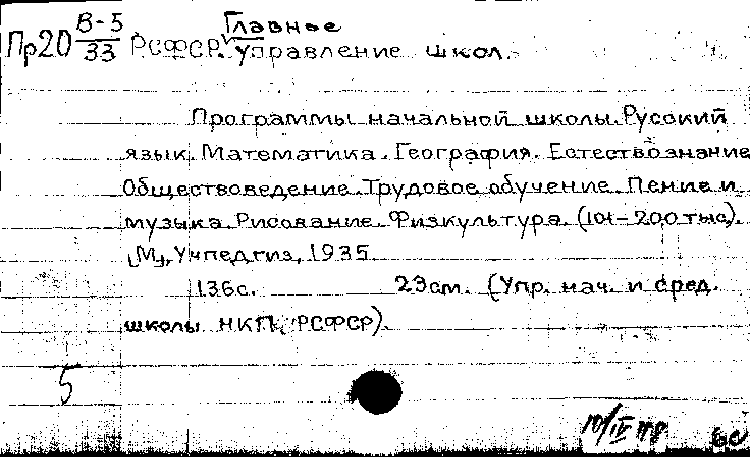 Пр20 В-5/33 РСФСР. Главное управление школ.
Программы начальной школы. Русский
язык. Математика. География. Естествознание
Обществоведение. Трудовое обучение. Пение и
музыка. Рисование. Физкультура. (101-200 тыс).
[М], Учпедгиз, 1935
136с. 23см. (Упр. нач. и сред.
школы НКП РСФСР).
5
10/IV